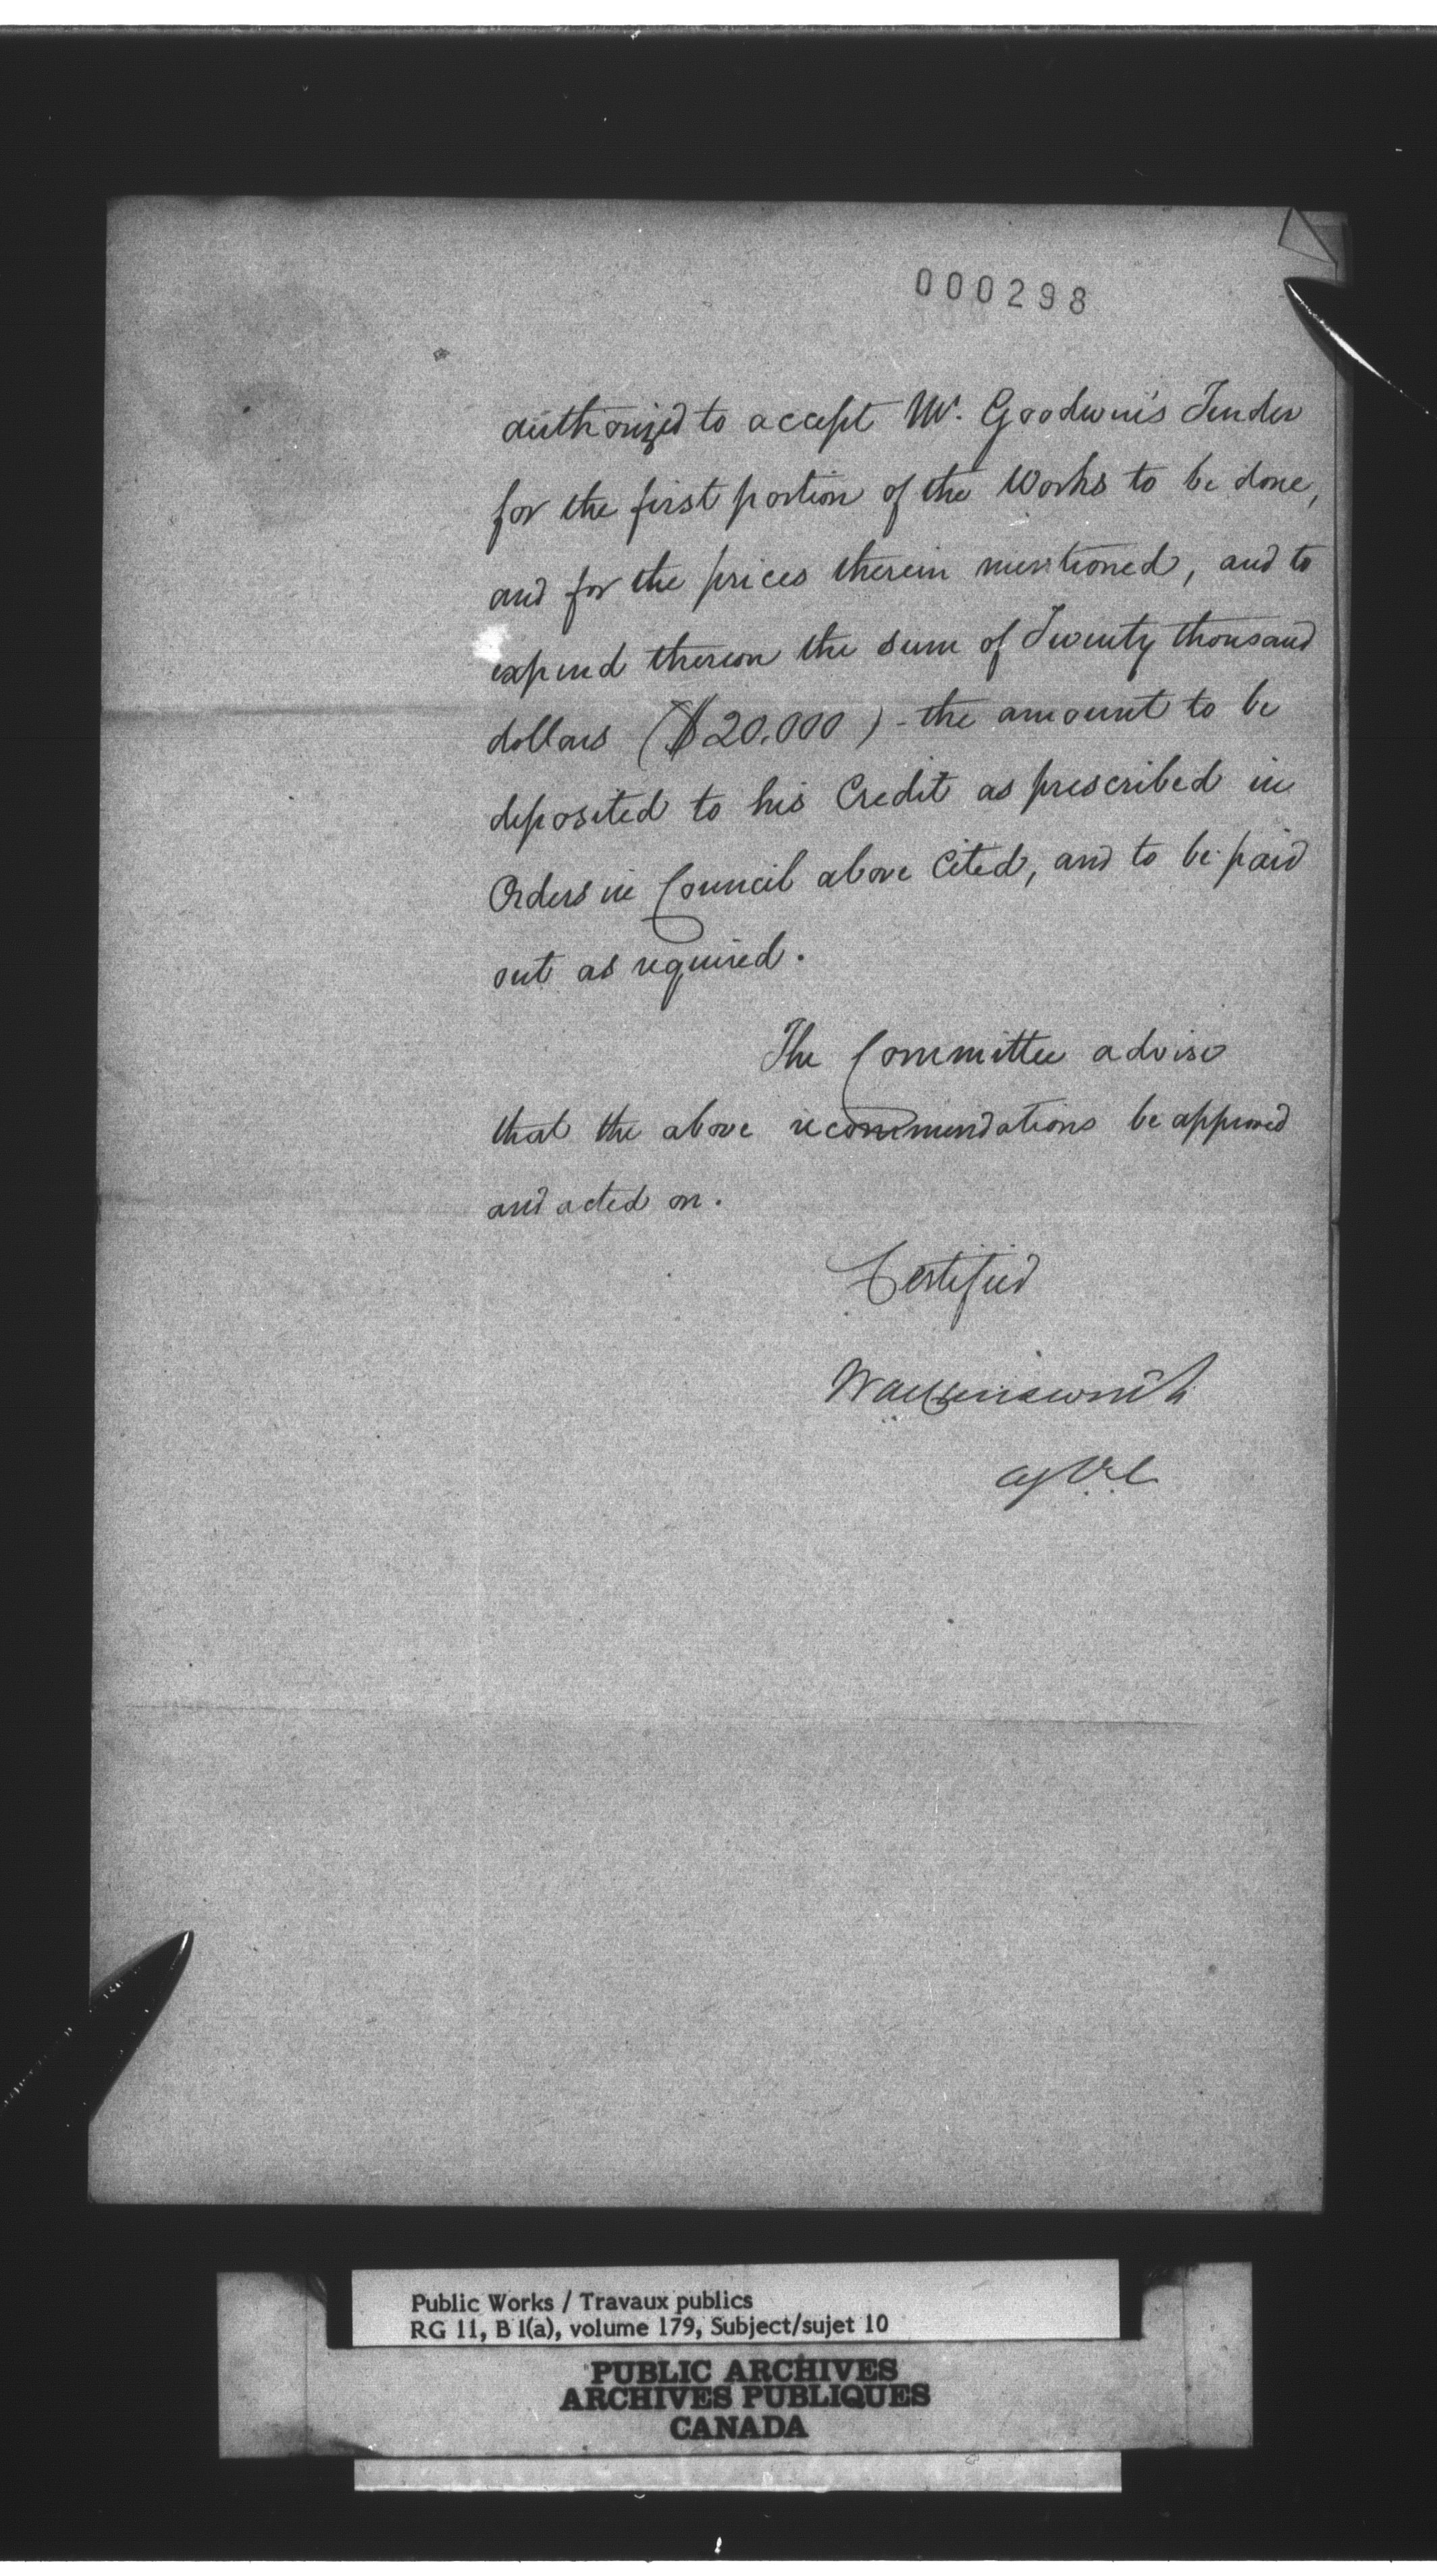 000298
authorized to accept Mr. Goodwin's Tender
for the first portion of the Works to be done,
and for the prices therein mentioned, and to
expend thereon the sum of Twenty thousand
dollars ($20.000) - the amount to be
deposited to his Credit as prescribed in
Orders in Council above Cited, and to be paid
out as required.
The Committee advise
that the above recommendations be approved
and acted on.
Certified
Public Works / Travaux publics
RG 11, B 1(a), volume 179, Subject/sujet 10
PUBLIC ARCHIVES
ARCHIVES PUBLIQUES
CANADA